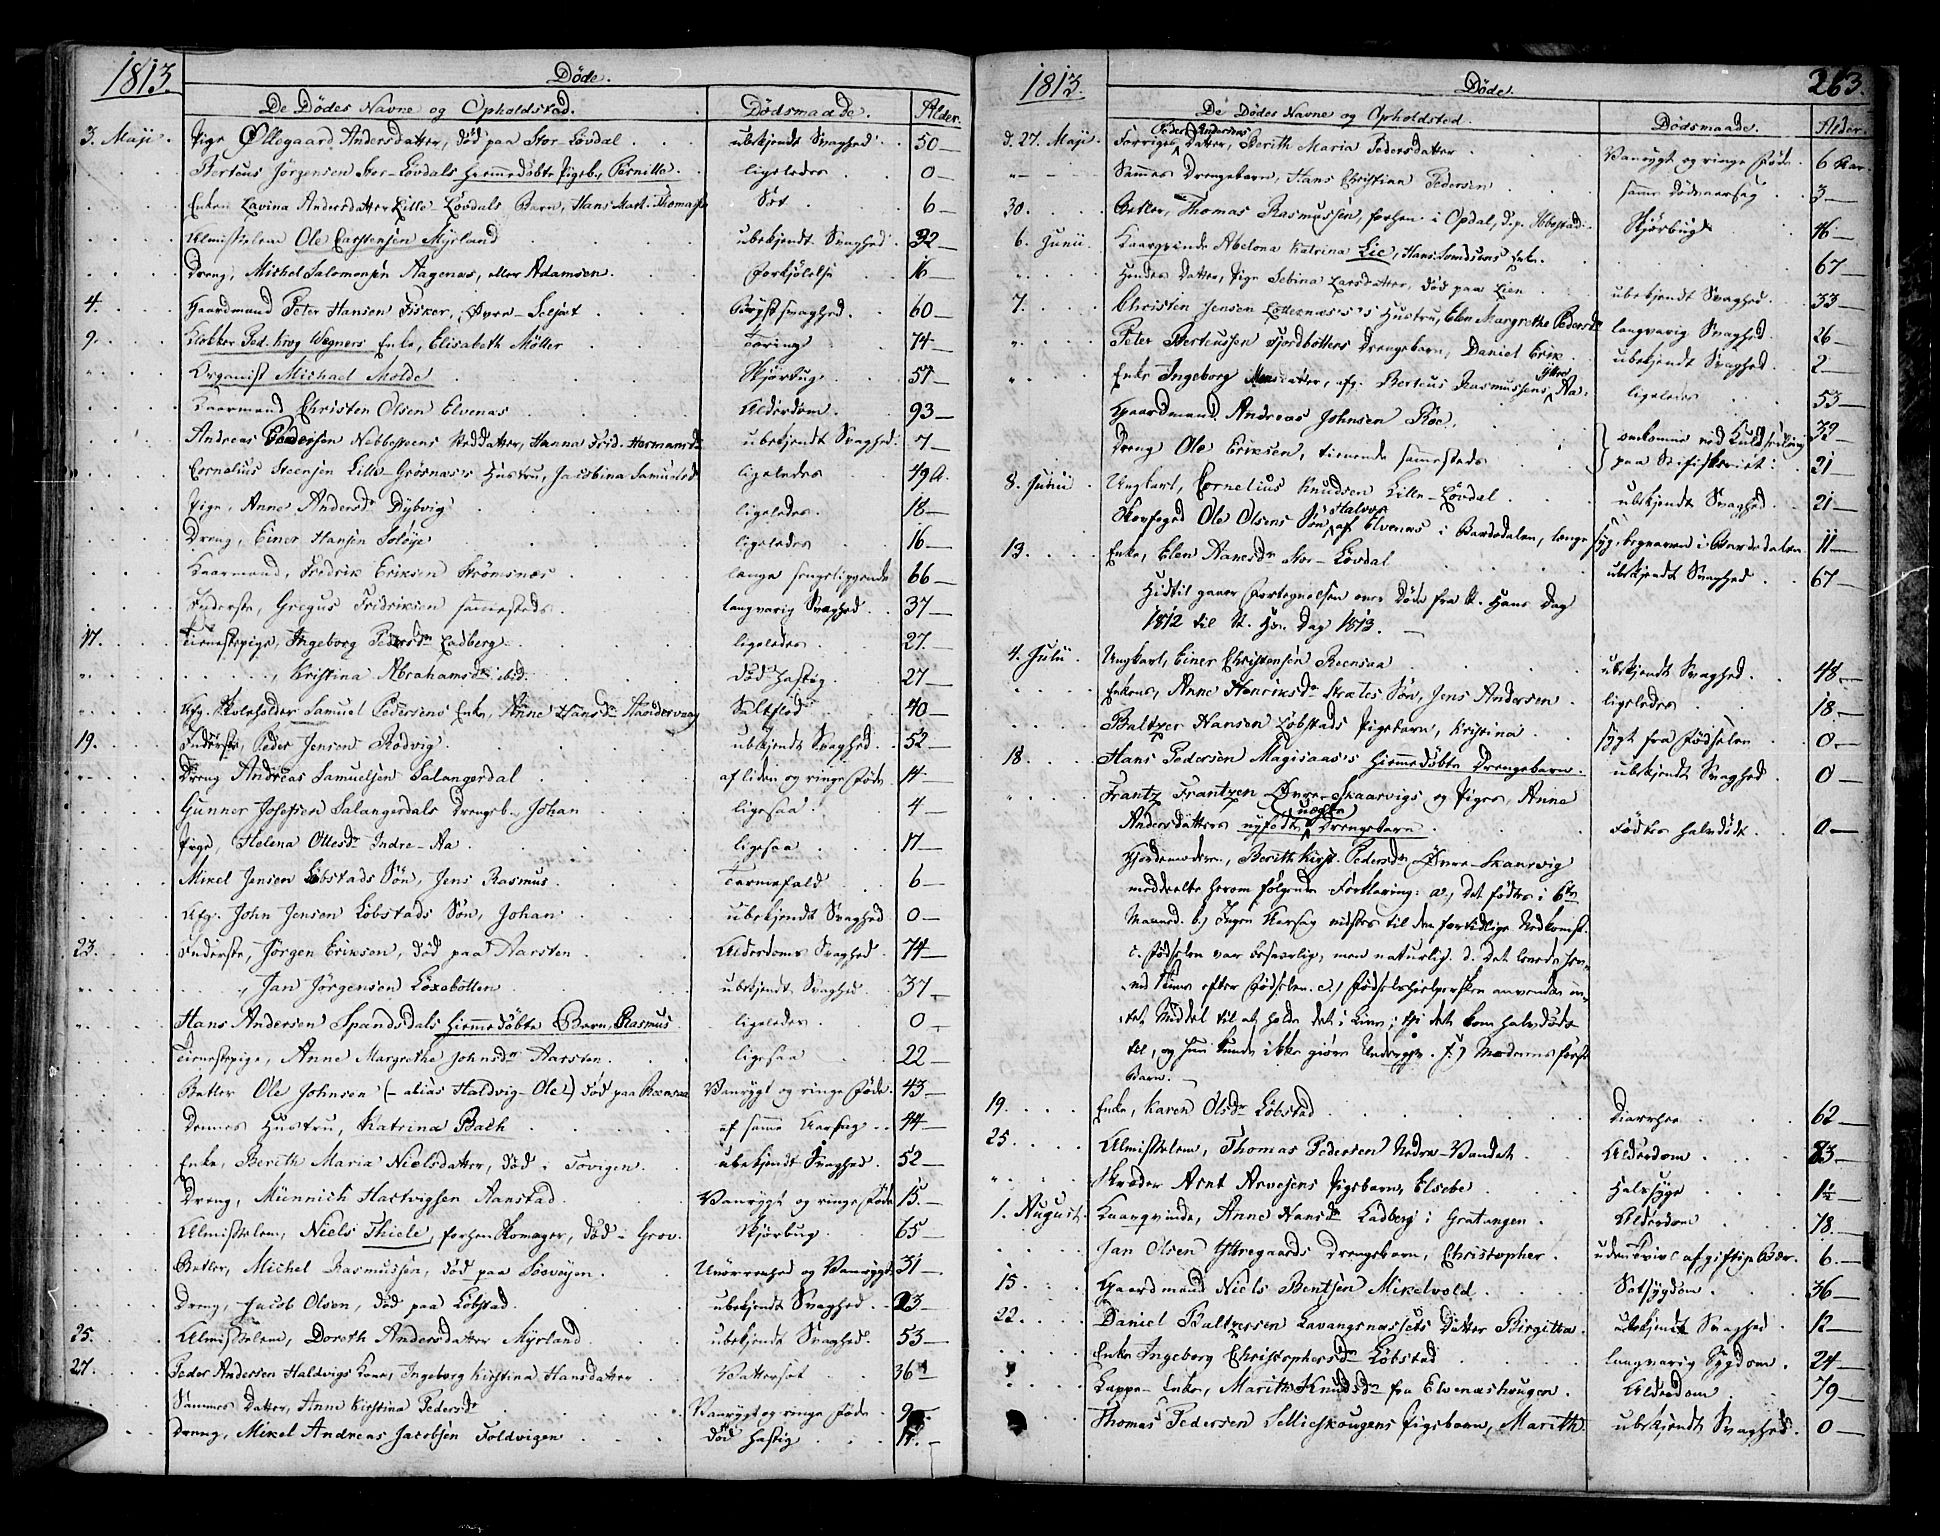 1813.
Døde.
De Dødes Navne og Opholdsted. Dødsmaade. Alder.
3. Maji. Pige Ollegaard Andersdatter, død paa Stor Løvdal ubekjendt Svaghed. 50
Berteus Jørgensen Stor-Løvdals hiemmedøbte Pigeb., Pernilla. ligeledes 0
Enken Lavina Andersdatter Lille Løvdals Barn, Hans Mart. Thomas 6
Almisselem Ole Carstensen Myrland ubekjendt Svaghed. 32
Dreng, Michel Salomonsen Aagenæs, eller Adamsen. Forkjølelse 16
4. Gaardmand Peter Hansen Fisker, Øvre-Seljæt Brystsvaghed. 60
9. Klokker Ped. Krog Wegners Enke, Elisabeth Møller Tæring 74
Organist Michael Molde Skjørbug 57
Kaarmand Christen Olsen Elvenæs Alderdom. 93
Andreas Pedersen Nebbesteens Steddatter, Hanna Frid. Hermansd. ubekjendt Svaghed. 7
Cornelius Steensen Lille-Grøsnæs's Hustru, Jacobina Samuelsd ligeledes 49 A.
Pige, Anne Andersdr Dybvig ligeledes. 18
Dreng, Einer Hansen Soløye ligeledes 16
Kaarmand, Fredrik Eriksen Strømsnæs længe sengeliggende 66
Inderste, Gregus Fridriksen sammesteds langvarig Svaghed. 37
17. Tienestepige, Ingeborg Pedersdr Ladberg ligeledes. 27.
Kristina Abrahamsdr ibid. død hastig. 27
Afg. Skoleholder Samuel Pedersens Enke, Anne Hansdr 40
19. Inderste, Peder Jensen Rødvig. ubekjendt Svaghed. 52
Dreng Andreas Samuelsen Salangerdal af liden og ringe Føde 14
Gunner Josefsen Salangerdals Drengeb. Johan ligesaa. 4
Pige, Helena Ollesdr Indre-Aa. ligesaa 17
Mikel Jensen Løbstads Søn, Jens Rasmus Tarmefald 6
Afg. John Jensen Løbstads Søn, Johan ubekjendt Svaghed 0
23. Inderste, Jørgen Eriksen, død paa Aarsten Alderdoms Svaghed 74
Jan Jørgensen Løxebotten ubekjendt Svaghed. 37
Hans Andersen Spandsdals hiemmedøbte Barn, Rasmus ligeledes. 0
Tienestepige, Anne Margrethe Johnsdr Aarsten. ligesaa 22
Betler Ole Johnsen (- alias Haldvig-Ole) død paa Roensaa Vanrygt og ringe Føde. 43
Dennes Hustru, Katrina Bach af samme Aarsag 44
Enke, Berith Maria Nielsdatter, død i Tovigen. ubekjendt Svaghed. 52
Dreng, Münnich Hartvigsen Aanstad. Vanrygt og ringe Føde 15.
Almisselem, Niels Thiele, forhen Skomager, død i Grov. Skjørbug. 65
Betler, Michel Rasmussen, død paa Søevejen. Uvørrenhed og Vanrygt 31
Dreng, Jacob Olsen, død paa Løbstad. ubekjendt Svaghed. 23
25. Almisselem, Doroth Andersdatter Myrland ubekjendt Svaghed. 53
27. Peder Andersen Haldvigs Kone, Ingeborg Kirstina Hansdatter Vattersot 36
Sammes Datter, Anne Kirstina Pedersdr Vanrygt og ringe Føde 9
Dreng, Mikel Andreas Jacobsen Foldvigen død hastig

1813. 263.
Døde.
De Dødes Navne og Opholdsted. Dødsmaade. Alder.
d. 27. Maji. Forriges Peder Andersens Datter, Berith Maria Pedersdatter Vanrygt og ringe Føde. 6 Aar.
Sammes Drengebarn, Hans Christian Pedersen samme Dødsaarsag 3
30. Betler, Thomas Rasmussen, forhen i Opdal, Skjørbug 46
6. Junii Kaarqvinde Abelona Katrina Lie, Hans Enke. 67
Hendes Datter, Pige Sebina Larsdatter, død paa Lien ubekjendt Svaghed. 33
7. Christen Jensen Hustru, Elen Margrethe Pedersdr langvarig Svaghed 26
Peter Berteussen Fjordbotters Drengebarn, Daniel Erik ubekjendt Svaghed. 2
Enke Ingeborg datter, afg. Berteus Rasmussens Yttre Aa. ligeledes 53
Gaardmand Andreas Johnsen Røe. 32
Dreng Ole Eriksen, tienende sammesteds omkomne ved Kuldseiling paa Seifiskeriet. 21
8. Junii Ungkarl, Cornelius Knudsen Lille-Løvdal ubekjendt Svaghed 21
Skovfoged Ole Olsens Søn Halvor af Elvenæs i Bardodalen, længe syg, begraven i Bardodalen. 11
13. Enke, Elen Aanesdr Stor-Løvdal ubekjendt Svaghed 67
Hidtil gaaer Fortegnelsen over Døde fra St. Hans Dag
1812 til St. Hans Dag 1813.
4. Julii Ungkarl, Einer Christensen Roensaa ubekjendt Svaghed. 48
Enkens, Anne Henriksdr Skates Søn, Jens Andersen ligeledes 18
Baltzer Hansen Løbstads Pigebarn, Kristina sygt fra Fødselen 0
18. Hans Pedersen Magisaas's hiemmedøbte Drengebarn. ubekjendt Svaghed 0
Frantz Frantzen Øvre-Skaarvigs og Piges, Anne
Andersdatters nyfødte uægte Drengebarn. Fødtes halvdødt 0
Gjordemoderen, Berith Kirst. Pedersdr Øvre-Skaarvig
meddeelte herom følgende Forklaring: a, Det fødtes i 6te
Maaned. b, Ingen Aarsag vidstes til den fortidlige Nedkomst.
c. Fødselen var besværlig, men naturlig. d. Det levede
Timer efter Fødselen. e.) Fødselshjelpersken anvendte in-
tet Middel til at holde det i Live; thi det kom halvdødt
til, og hun kunde ikke giøre Underretn. f.) Moderens første
Barn.
19. Enke, Karen Olsdr Løbstad Diarrhee 62
25. Almisselem, Thomas Pedersen Nedre-Vandet. Alderdom 83
Skræder Arnt Arvesens Pigebarn, Elsebe Halssyge 1½
1. August. Kaarqvinde, Anne Hansdr Ladberg i Gratangen. Alderdom 78.
Jan Olsen Yttregaards Drengebarn, Christopher. uden Tvivl af giftige Bær. 6
15. Gaardmand Niels Bentsen Mikelvold Sotsygdom 36
22. Daniel Baltzersen Lavangsnæssets Datter Birgitha. ubekjendt Svaghed. 12
Enke Ingeborg Christophersdr Løbstad langvarig Sygdom. 24
Lappe-Enke, Marith Knudsdr fra Elvenæshougen. Alderdom 79
Thomas Pedersen Selliskougens Pigebarn, Marith ubekjendt Svaghed. 0